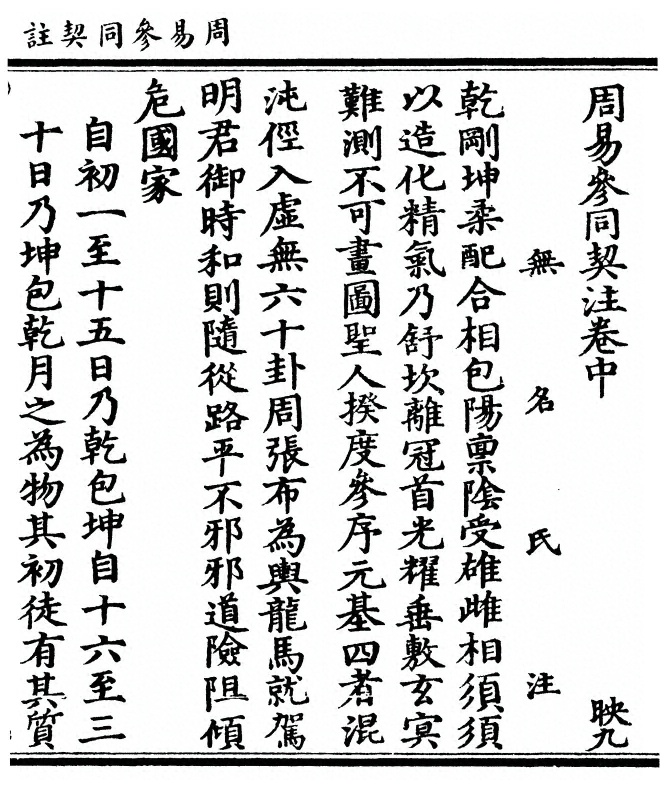 周易參同契註
周易參同契注卷中
映九
無名氏注
乾剛坤柔配合相包陽稟陰受雄雌相須須
以造化精氣乃舒坎離冠首光耀垂敷玄冥
難測不可畫圖聖人揆度參序元基四者混
沌俓入虛無六十卦周張布為輿龍馬就駕
明君御時和則隨從路平不邪邪道險阻傾
危國家
自初一至十五日乃乾包坤自十六至三
十日乃坤包乾月之為物其初徒有其質